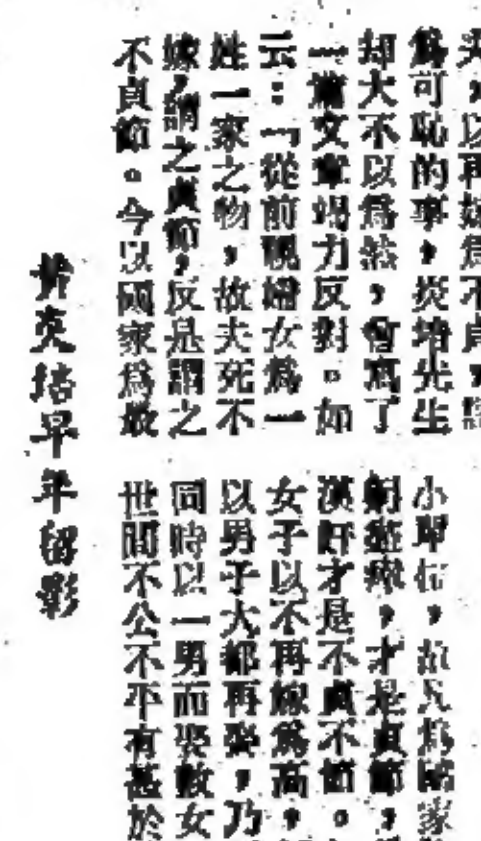 以再嫁爲不貞，
爲可恥的事，炎培先生
却大不以爲然，曾寫了
一篇文章竭力反對。如
云：「從前視婦女爲一
姓一家之物，故夫死不
嫁，謂之貞節，反是謂之
不貞節。今以國家爲敵
小單位，故凡爲國家
躬盡瘁，才是貞節，
漢奸才是不貞不節。
女子以不再嫁爲高，
以男子大都再娶，乃
同時以一男而娶數女
世間不公不平有甚於
黃炎培早年留影